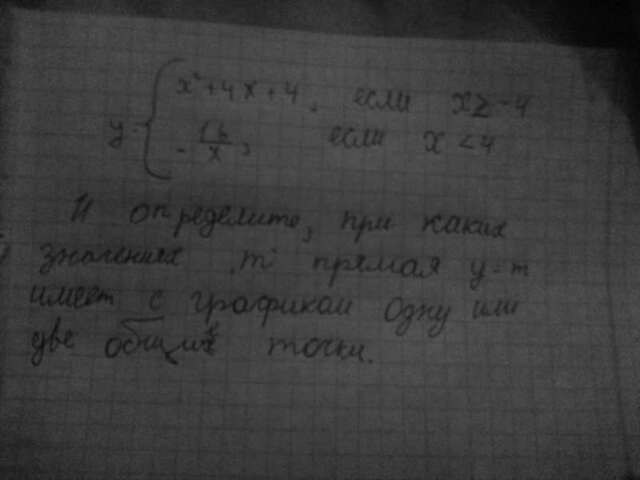 y = { x² + 4x + 4, если x ≥ -4
- 16/x, если x < 4
И определите, при каких
значениях m прямая y = m
имеет с графиком одну или
две общие точки.